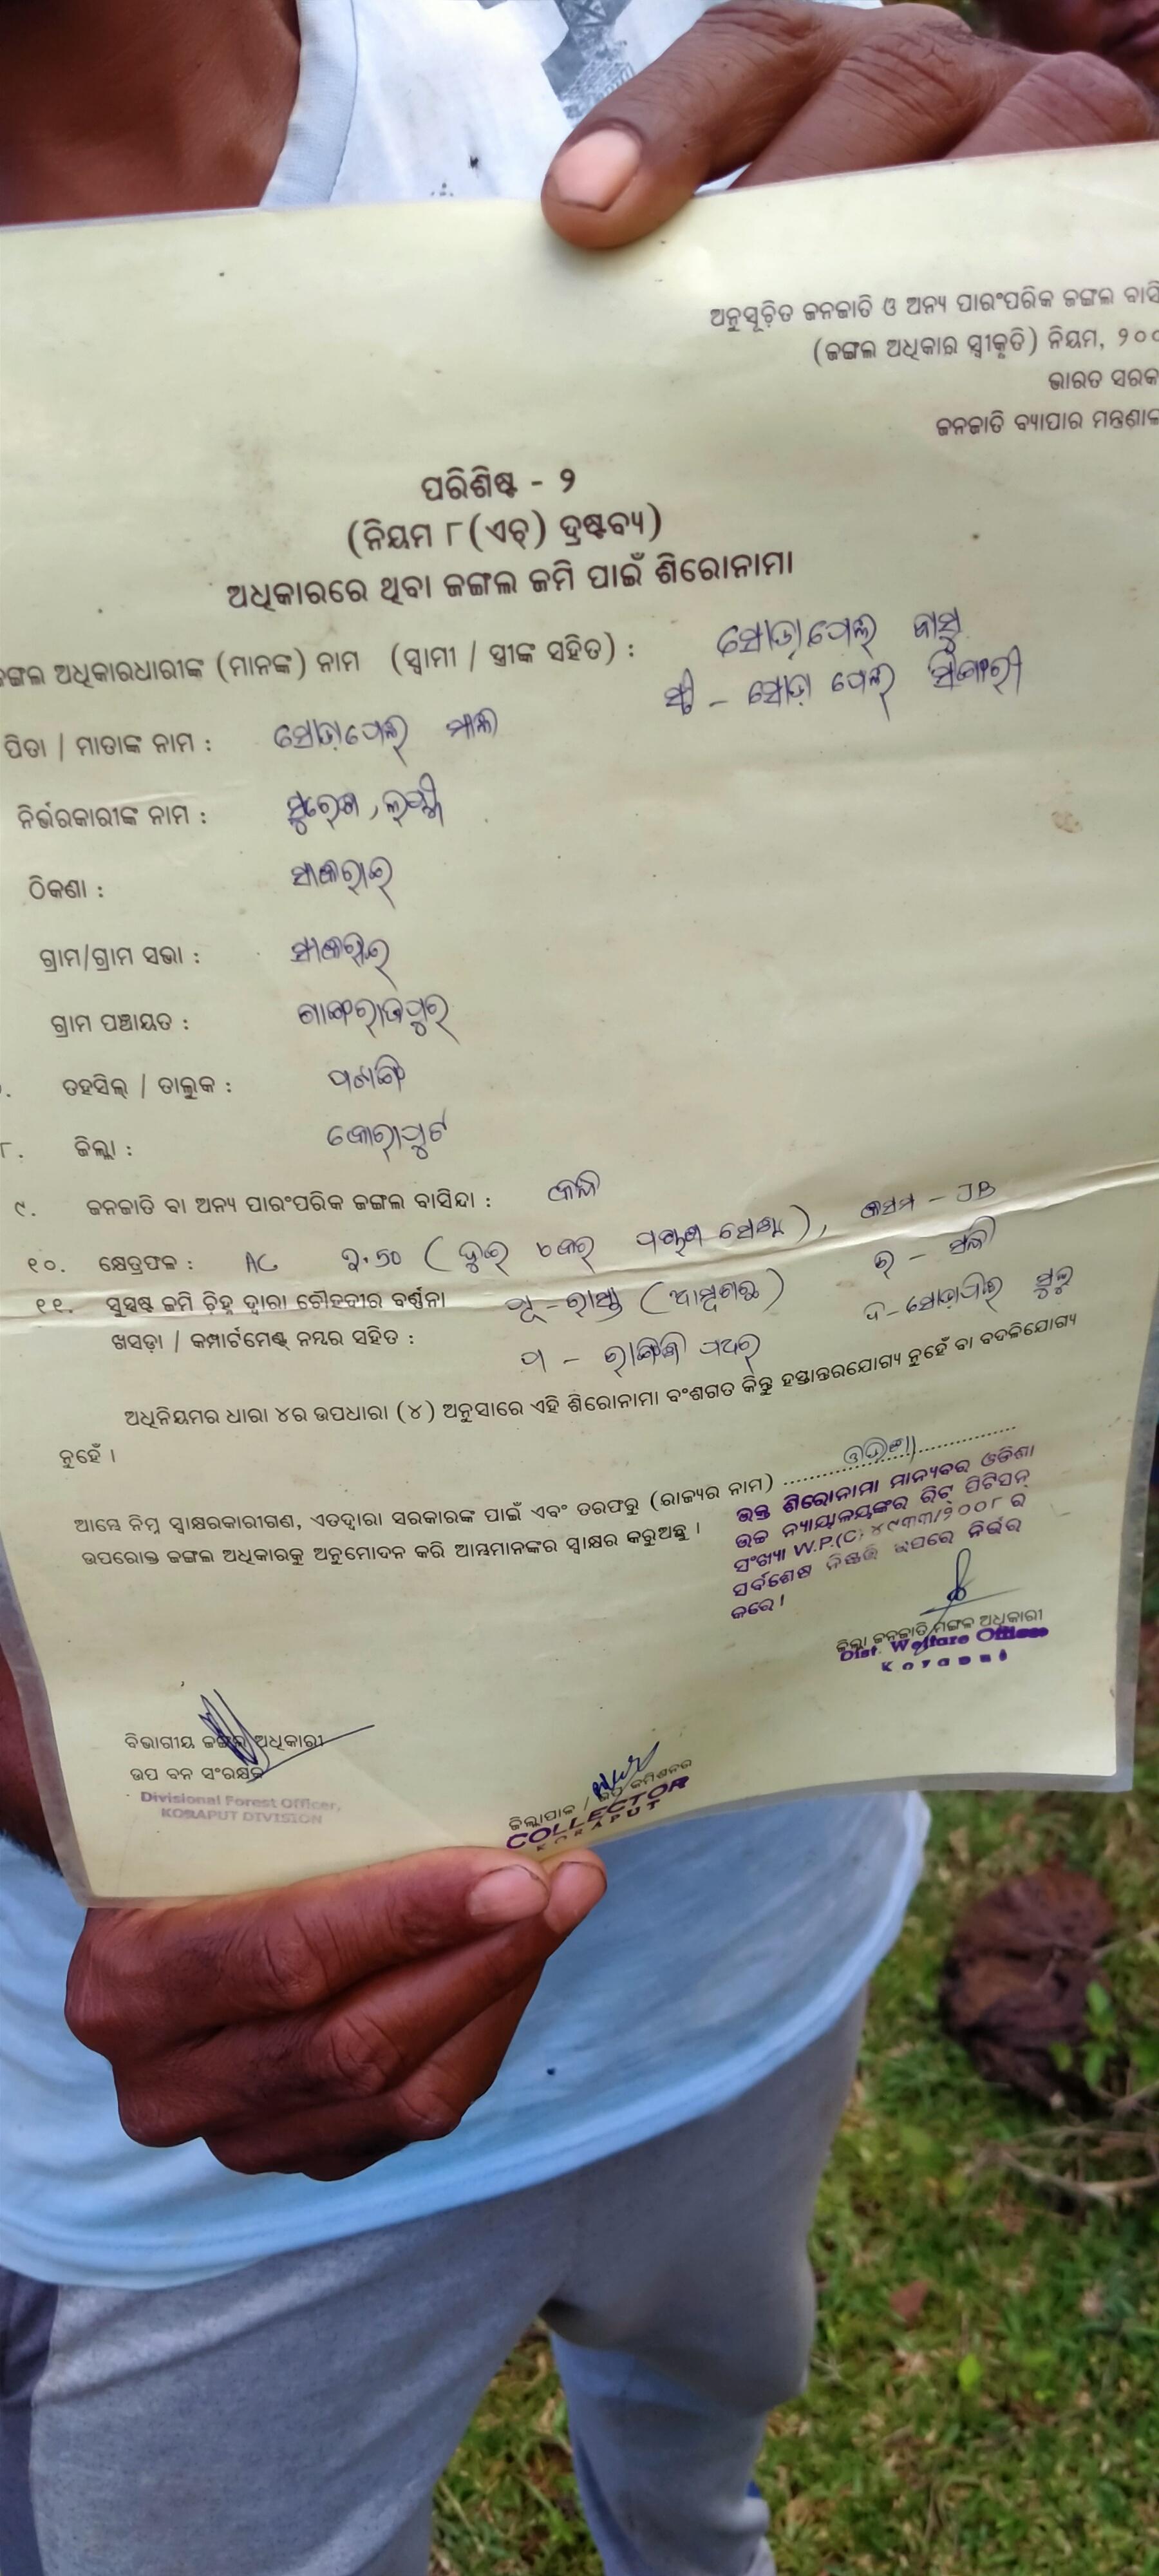 ଅନୁସୂଚିତ ଜନଜାତି ଓ ଅନ୍ୟ ପାରଂପରିକ ଜଙ୍ଗଲ ବାସି
(ଜଙ୍ଗଲ ଅଧିକାର ସ୍ୱୀକୃତି) ନିୟମ, ୨୦୦
ଭାରତ ସରକା
ଜନଜାତି ବ୍ୟାପାର ମନ୍ତ୍ରଣାଳ
ପରିଶିଷ୍ଟ - ୨
(ନିୟମ ୮(ଏଚ୍) ଦ୍ରଷ୍ଟବ୍ୟ)
ଅଧିକାରରେ ଥିବା ଜଙ୍ଗଲ ଜମି ପାଇଁ ଶିରୋନାମା
ଜଙ୍ଗଲ ଅଧିକାରଧାରୀଙ୍କ (ମାନଙ୍କ) ନାମ (ସ୍ୱାମୀ / ସ୍ତ୍ରୀଙ୍କ ସହିତ) : ସୋଡ଼ାପେଲ୍ ବାସୁ
ସ୍ତ୍ରୀ - ସୋଡ଼ା ପେଲ୍
ପିତା / ମାତାଙ୍କ ନାମ : ସୋଡ଼ାପେଲ୍
ନିର୍ଭରକାରୀଙ୍କ ନାମ :
ଠିକଣା : ସାକରାଇ
ଗ୍ରାମ/ଗ୍ରାମ ସଭା : ସାକରାଇ
ଗ୍ରାମ ପଞ୍ଚାୟତ : ଗାଙ୍ଗରାଜପୁର
ତହସିଲ୍ / ତାଲୁକ : ପଟାଙ୍ଗି
୮. ଜିଲ୍ଲା : କୋରାପୁଟ
୯. ଜନଜାତି ବା ଅନ୍ୟ ପାରଂପରିକ ଜଙ୍ଗଲ ବାସିନ୍ଦା :
୧୦. କ୍ଷେତ୍ରଫଳ : AC 2.50 (ଦୁଇ ଏକର ପଚାଶ), କିସମ - JB
୧୧. ସୁସ୍ପଷ୍ଟ ଜମି ଚିହ୍ନ ଦ୍ୱାରା ଚୌହଦୀର ବର୍ଣ୍ଣନା ପୂ - ରାସ୍ତା (ଆମ୍ବଗଛ) ଉ -
ଖସଡ଼ା / କମ୍ପାର୍ଟମେଣ୍ଟ୍ ନମ୍ବର ସହିତ : ପ - ପଥର ଦ -
ଅଧିନିୟମର ଧାରା ୪ର ଉପଧାରା (୪) ଅନୁସାରେ ଏହି ଶିରୋନାମା ବଂଶଗତ କିନ୍ତୁ ହସ୍ତାନ୍ତରଯୋଗ୍ୟ ନୁହେଁ ବା ବଦଳିଯୋଗ୍ୟ
ନୁହେଁ ।
ଆମ୍ଭେ ନିମ୍ନ ସ୍ୱାକ୍ଷରକାରୀଗଣ, ଏତଦ୍ୱାରା ସରକାରଙ୍କ ପାଇଁ ଏବଂ ତରଫରୁ (ରାଜ୍ୟର ନାମ) ଓଡ଼ିଶା
ଉପରୋକ୍ତ ଜଙ୍ଗଲ ଅଧିକାରକୁ ଅନୁମୋଦନ କରି ଆମ୍ଭମାନଙ୍କର ସ୍ୱାକ୍ଷର କରୁଅଛୁ ।
ଉକ୍ତ ଶିରୋନାମା ମାନ୍ୟବର ଓଡିଶା
ଉଚ୍ଚ ନ୍ୟାୟାଳୟଙ୍କର ରିଟ୍ ପିଟିସନ୍
ସଂଖ୍ୟା W.P.(C) ୪୯୩୩/୨୦୦୮ ର
ସର୍ବଶେଷ ନିଷ୍ପତ୍ତି ଉପରେ ନିର୍ଭର
କରେ ।
ଜିଲ୍ଲା ଜନଜାତି ମଙ୍ଗଳ ଅଧିକାରୀ
Dist. Welfare Officer
Koraput
ବିଭାଗୀୟ ଜଙ୍ଗଲ ଅଧିକାରୀ
ଉପ ବନ ସଂରକ୍ଷକ
Divisional Forest Officer,
KORAPUT DIVISION
ଜିଲ୍ଲାପାଳ / ଉପ କମିଶନର
COLLECTOR
KORAPUT